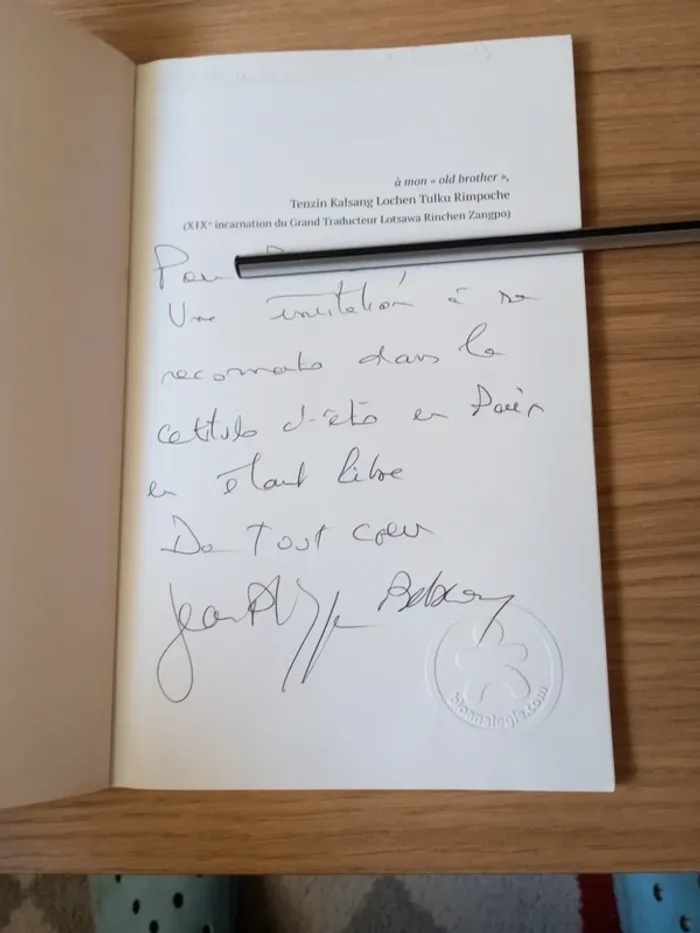 à mon « old brother »,
Tenzin Kalsang Lochen Tulku Rimpoche
(XIXᵉ incarnation du Grand Traducteur Lotsawa Rinchen Zangpo)
Pour
Une invitation à se
reconnaitre dans la
certitude d'être en Paix
en étant libre
De Tout cœur
Jean Philippe
bioanalogie.com